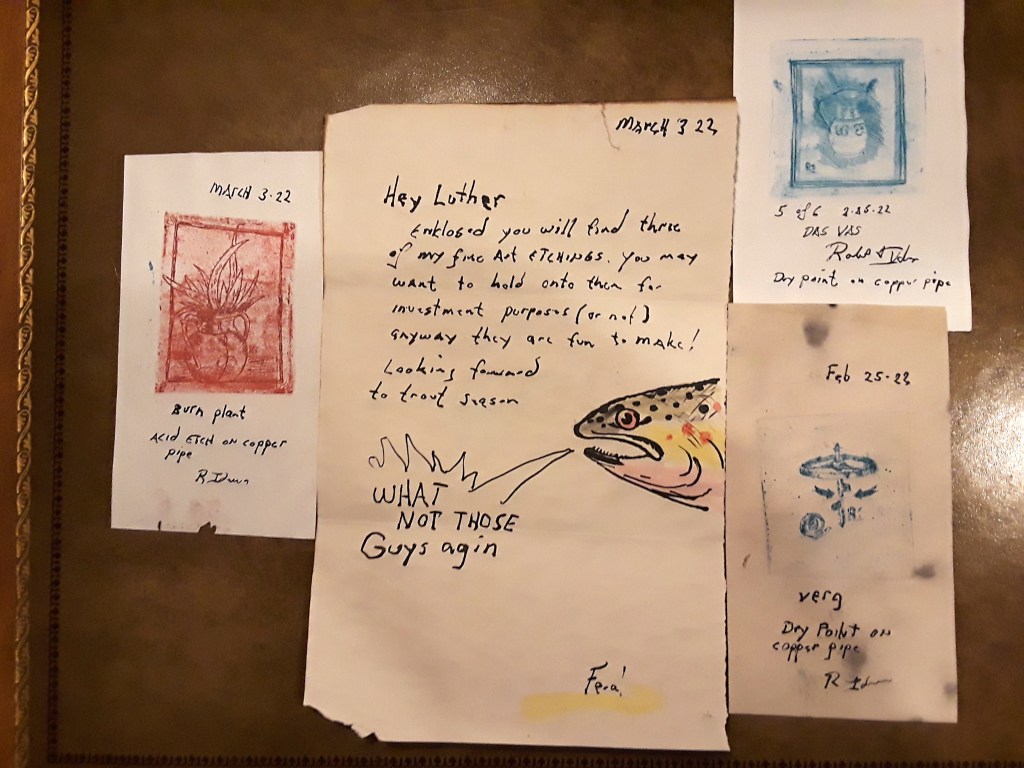 MARCH 3 22
Hey Luther
Enklosed you will find three
of my fine Art ETCHINGS. you may
want to hold onto them for
investment purposes (or not)
anyway they are fun to make!
Looking forward
to trout season
WHAT
NOT THOSE
Guys agin
MARCH 3-22
Burn plant
ACID ETCH ON COPPER
pipe
5 of 6 2-25-22
DAS VAS
Dry point on copper pipe
Feb 25-22
verg
Dry Point on
copper pipe